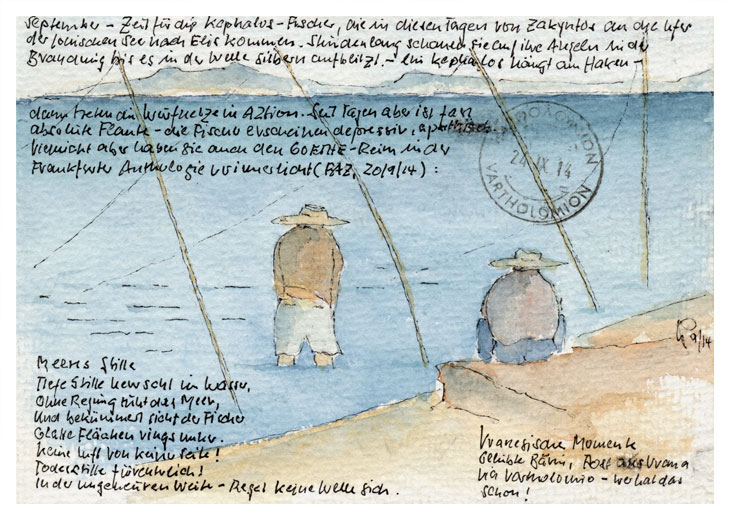 September – Zeit für die Kephalos-Fischer, die in diesen Tagen von Zakyntos an die Ufer
der Ionischen See nach Elis kommen. Stundenlang schauen sie auf ihre Angeln in der
Brandung bis es in der Welle silbern aufblitzt – ein Kephalos hängt am Haken –
dann treten die Wurfnetze in Aktion. Seit Tagen aber ist fast
absolute Flaute – die Fischer erscheinen depressiv, apathisch.
Vielleicht aber haben sie auch den GOETHE-Reim in der
Frankfurter Anthologie verinnerlicht (FAZ, 20/9/14) :
VARTHOLOMION
24 IX 14
VARTHOLOMION
9/14
Meeres Stille
Tiefe Stille herrscht im Wasser,
Ohne Regung ruht das Meer,
Und bekümmert sieht der Fischer
Glatte Flächen rings umher.
Keine Luft von keiner Seite!
Todesstille fürchterlich!
In der ungeheuren Weite – Reget keine Welle sich.
Vranesische Momente
Geliebte Bärin, Post aus Vrana
via Vartholomio – wer hat das
schon!